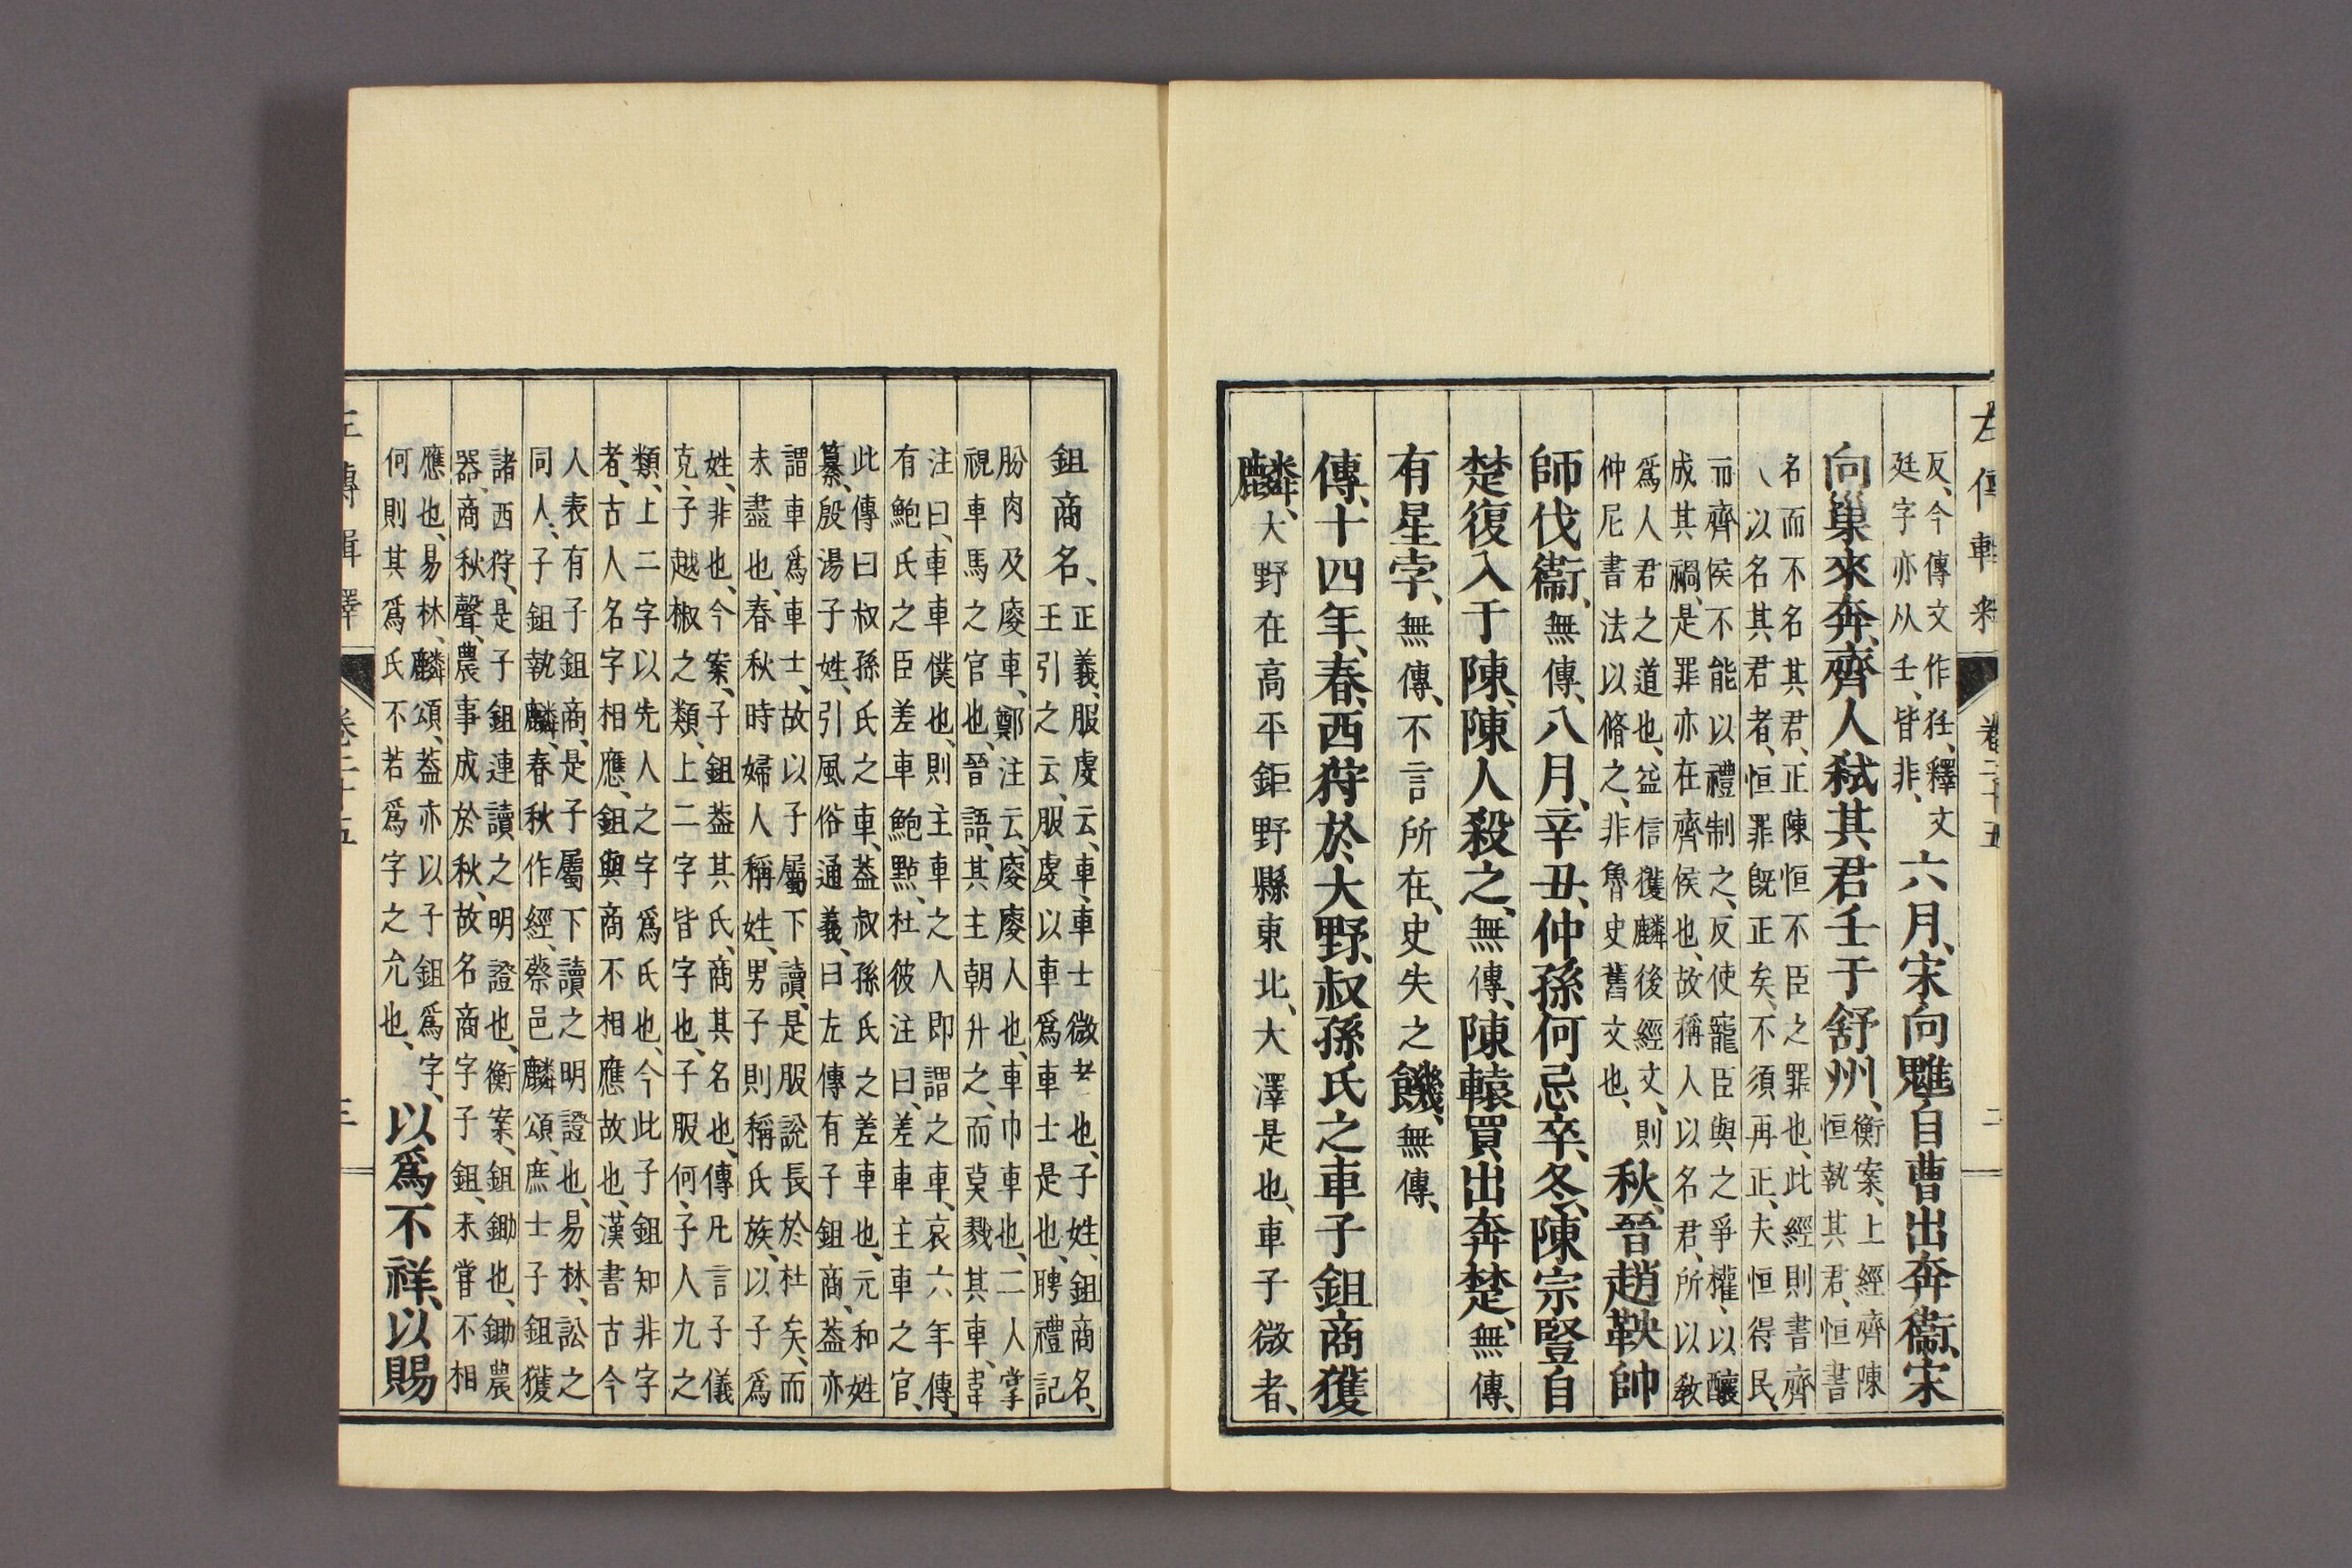 左傳輯釋 卷二十五 二
反、今傳文作狂、釋文
廷字亦从壬、皆非、
六月、宋向魋自曹出奔衞、宋
向巢來奔、齊人弒其君壬于舒州、
衡案、上經齊陳
恒執其君、恒書
名而不名其君、正陳恒不臣之罪也、此經則書齊
人以名其君者、恒罪旣正矣、不須再正、夫恒得民、
而齊侯不能以禮制之、反使寵臣與之爭權、以釀
成其禍、是罪亦在齊侯也、故稱人以名君、所以敎
爲人君之道也、益信獲麟後經文、則
仲尼書法以脩之、非魯史舊文也、
秋、晉趙鞅帥
師伐衞、無傳、八月、辛丑、仲孫何忌卒、冬、陳宗豎自
楚復入于陳、陳人殺之、無傳、陳轅買出奔楚、無傳、
有星孛、無傳、不言所在、史失之饑、無傳、
傳、十四年、春、西狩於大野、叔孫氏之車子鉏商獲
麟、大野在高平鉅野縣東北、大澤是也、車子微者、
鉏商名、
正義、服虔云、車、車士微者也、子姓、鉏商名、
王引之云、服虔以車爲車士是也、聘禮記
肦肉及廋車、鄭注云、廋廋人也、車巾車也、二人掌
視車馬之官也、晉語、其主朝升之、而莫戮其車、韋
注曰、車車僕也、則主車之人、即謂之車、哀六年傳、
有鮑氏之臣差車鮑點、杜彼注曰、差車主車之官、
此傳曰叔孫氏之車、葢叔孫氏之差車也、元和姓
纂、殷湯子姓、引風俗通義、曰左傳有子鉏商、葢亦
謂車爲車士、故以子屬下讀、是服說長於杜矣、而
未盡也、春秋時婦人稱姓、男子則稱氏族、以子爲
姓、非也、今案、子鉏葢其氏、商其名也、傳凡言子儀
克、子越椒之類、上二字皆字也、子服何、子人九之
類、上二字以先人之字爲氏也、今此子鉏知非字
者、古人名字相應、鉏與商不相應故也、漢書古今
人表有子鉏商、是子屬下讀之明證也、易林、訟之
同人、子鉏執麟、春秋作經、蔡邕麟頌、庶士子鉏獲
諸西狩、是子鉏連讀之明證也、衡案、鉏鋤也、鋤農
器、商秋聲、農事成於秋、故名商字子鉏、未嘗不相
應也、易林、麟頌、葢亦以子鉏爲字、
何則其爲氏不若爲字之允也、
以爲不祥、以賜
左傳輯釋 卷二十五 三